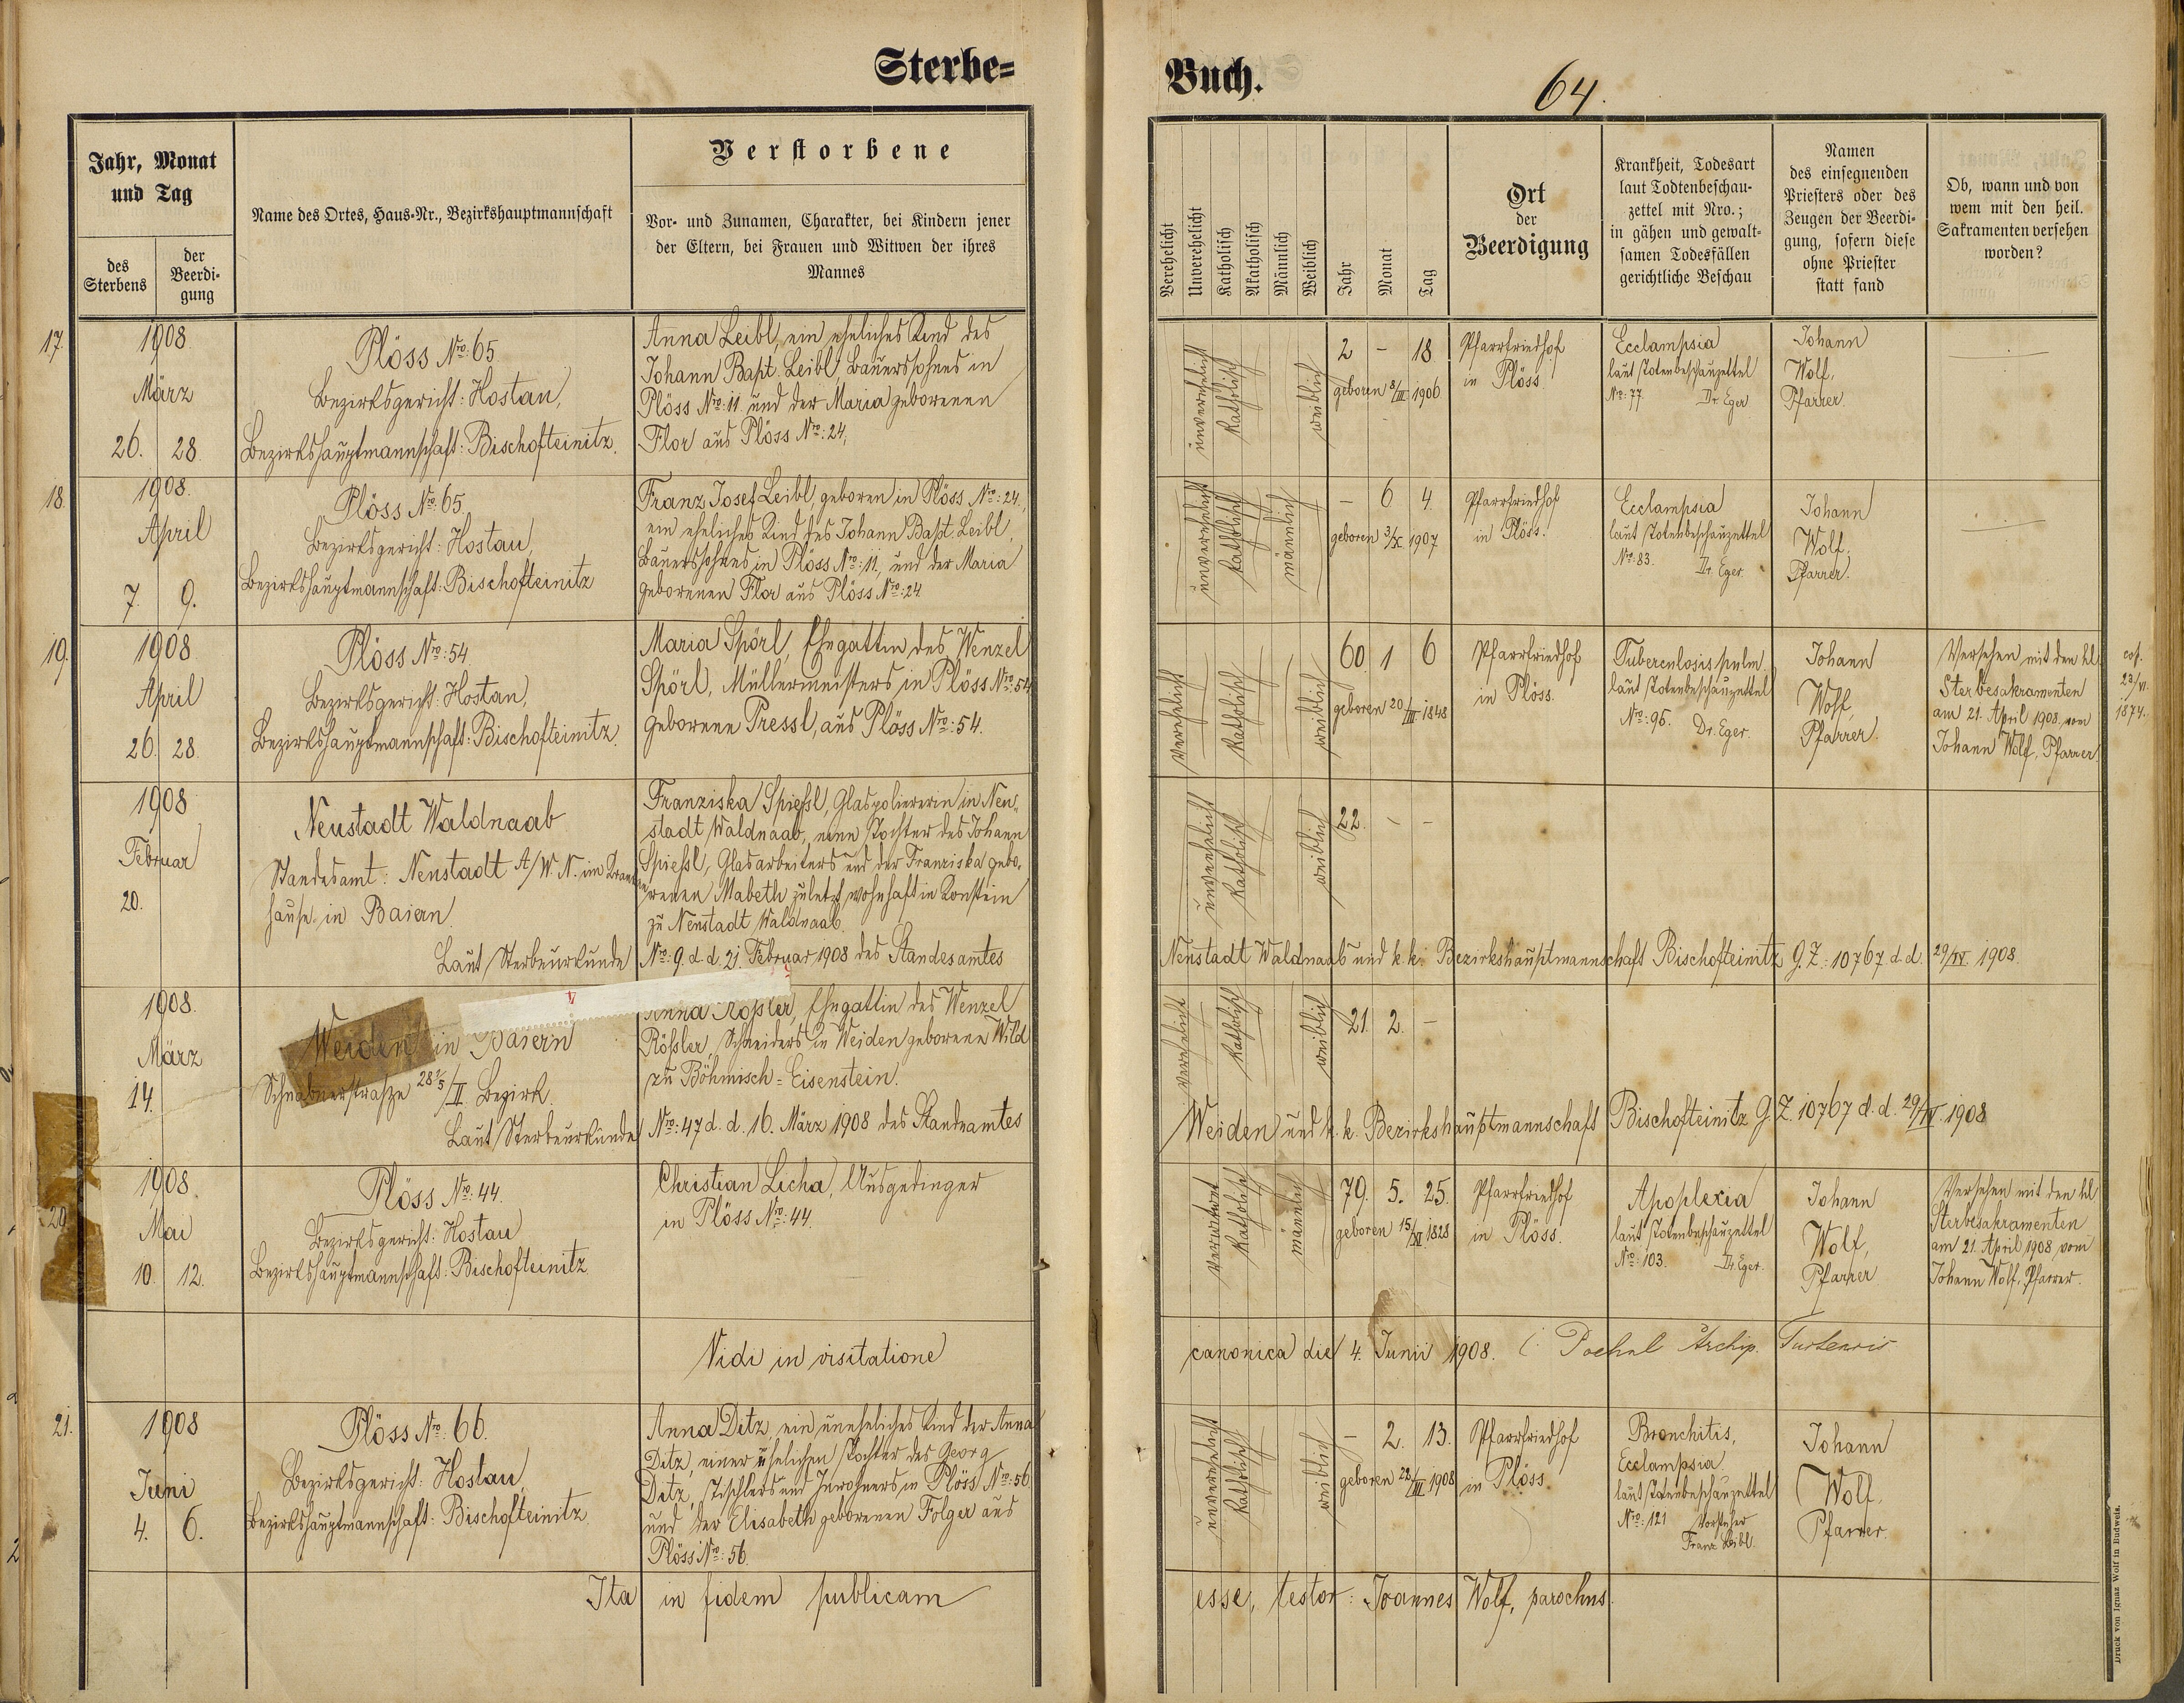 Sterbe=
Buch.
64.
Jahr, Monat
und Tag
des
Sterbens
der
Beerdi-
gung
Name des Ortes, Haus-Nr., Bezirkshauptmannschaft
Verstorbene
Vor- und Zunamen, Charakter, bei Kindern jener
der Eltern, bei Frauen und Witwen der ihres
Mannes
Verehelicht
Unverehelicht
Katholisch
Akatholisch
Männlich
Weiblich
Jahr
Monat
Tag
Ort
der
Beerdigung
Krankheit, Todesart
laut Todtenbeschau-
zettel mit Nro.;
in gähen und gewalt-
samen Todesfällen
gerichtliche Beschau
Namen
des einsegnenden
Priesters oder des
Zeugen der Beerdi-
gung, sofern diese
ohne Priester
statt fand
Ob, wann und von
wem mit den heil.
Sakramenten versehen
worden?
17.
1908
März
26. 28.
Plöss Nro: 65
Bezirksgericht: Hostau,
Bezirkshauptmannschaft: Bischofteinitz.
Anna Leibl, ein eheliches Kind des
Johann Bapt. Leibl, Bauerssohnes in
Plöss Nro: 11 und der Maria geborenen
Flor aus Plöss Nro: 24.
unverehelicht
katholisch
weiblich
2 - 18
geboren 8/III 1906
Pfarrfriedhof
in Plöss
Ecclampsia
laut Totenbeschauzettel
Nro: 77 Dr. Eger
Johann
Wolf,
Pfarrer.
18.
1908.
April
7. 9.
Plöss Nro: 65.
Bezirksgericht: Hostau,
Bezirkshauptmannschaft: Bischofteinitz
Franz Josef Leibl, geboren in Plöss Nro: 24.,
ein eheliches Kind des Johann Bapt. Leibl,
Bauerssohnes in Plöss Nro: 11, und der Maria
geborenen Flor aus Plöss Nro: 24
unverehelicht
katholisch
männlich
- 6 4.
geboren 3/X 1907
Pfarrfriedhof
in Plöss.
Ecclampsia
laut Totenbeschauzettel
Nro: 83. Dr. Eger.
Johann
Wolf,
Pfarrer.
19.
1908
April
26. 28.
Plöss Nro: 54
Bezirksgericht: Hostau,
Bezirkshauptmannschaft: Bischofteinitz.
Maria Spörl, Ehegattin des Wenzel
Spörl, Müllermeisters in Plöss Nro: 54
geborene Pressl, aus Plöss Nro: 54.
verehelicht
katholisch
weiblich
60 1 6
geboren 20/III 1848
Pfarrfriedhof
in Plöss.
Tuberculosis pulm.
laut Totenbeschauzettel
Nro: 96. Dr. Eger.
Johann
Wolf,
Pfarrer.
Versehen mit den hl.
Sterbesakramenten
am 21. April 1908 vom
Johann Wolf, Pfarrer
cop.
23/VI.
1874.
1908
Februar
20.
Neustadt Waldnaab
Standesamt: Neustadt A/W. N. im Kranken
hause in Baiern.
Franziska Spiessl, Glaspoliererin in Neu-
stadt Waldnaab, eine Tochter des Johann
Spiessl, Glasarbeiters und der Franziska gebo-
renen Mabeth zuletzt wohnhaft in Konstein
zu Neustadt Waldnaab.
unverehelicht
katholisch
weiblich
22. - -
Laut Sterbeurkunde Nro: 9. d. d. 21. Februar 1908 des Standesamtes Neustadt Waldnaab und k. k. Bezirkshauptmannschaft Bischofteinitz G. Z.: 10767 d. d. 29/IV. 1908.
1908.
März
14.
Weiden in Baiern
28 1/5 /II. Bezirk.
Anna Rößler, Ehegattin des Wenzel
Rößler, Schneiders in Weiden geborene Wild
zu Böhmisch-Eisenstein.
verehelicht
katholisch
weiblich
21. 2. -
Laut Sterbeurkunde Nro: 47 d. d. 16. März 1908 des Standesamtes Weiden und k. k. Bezirkshauptmannschaft Bischofteinitz G. Z 10767 d. d. 29/IV. 1908
20.
1908.
Mai
10. 12.
Plöss Nro: 44.
Bezirksgericht: Hostau
Bezirkshauptmannschaft: Bischofteinitz
Christian Licha, Ausgedinger
in Plöss Nro: 44.
verwitwet
katholisch
männlich
79. 5. 25.
geboren 15/XI 1828
Pfarrfriedhof
in Plöss.
Apoplexia
laut Totenbeschauzettel
Nro: 103. Dr. Eger.
Johann
Wolf,
Pfarrer
Versehen mit den hl
Sterbesakramenten
am 21. April 1908 vom
Johann Wolf, Pfarrer.
Vidi in visitatione canonica die 4. Junii 1908.
21.
1908
Juni
4. 6.
Plöss Nro: 66.
Bezirksgericht: Hostau,
Bezirkshauptmannschaft: Bischofteinitz.
Anna Ditz, ein uneheliches Kind der Anna
Ditz, einer ehelichen Tochter des Georg
Ditz, Tischlers und Inwohners in Plöss Nro: 56
und der Elisabeth geborenen Folger aus
Plöss Nro: 56.
unverehelicht
katholisch
weiblich
- 2. 13.
geboren 22/III 1908
Pfarrfriedhof
in Plöss.
Bronchitis,
Ecclampsia
laut Totenbeschauzettel
Nro: 121 Vorsteher
Franz Leibl.
Johann
Wolf,
Pfarrer.
Ita in fidem publicam esse, testor: Joannes Wolf, parochus.
Druck von Ignaz Wolf in Budweis.